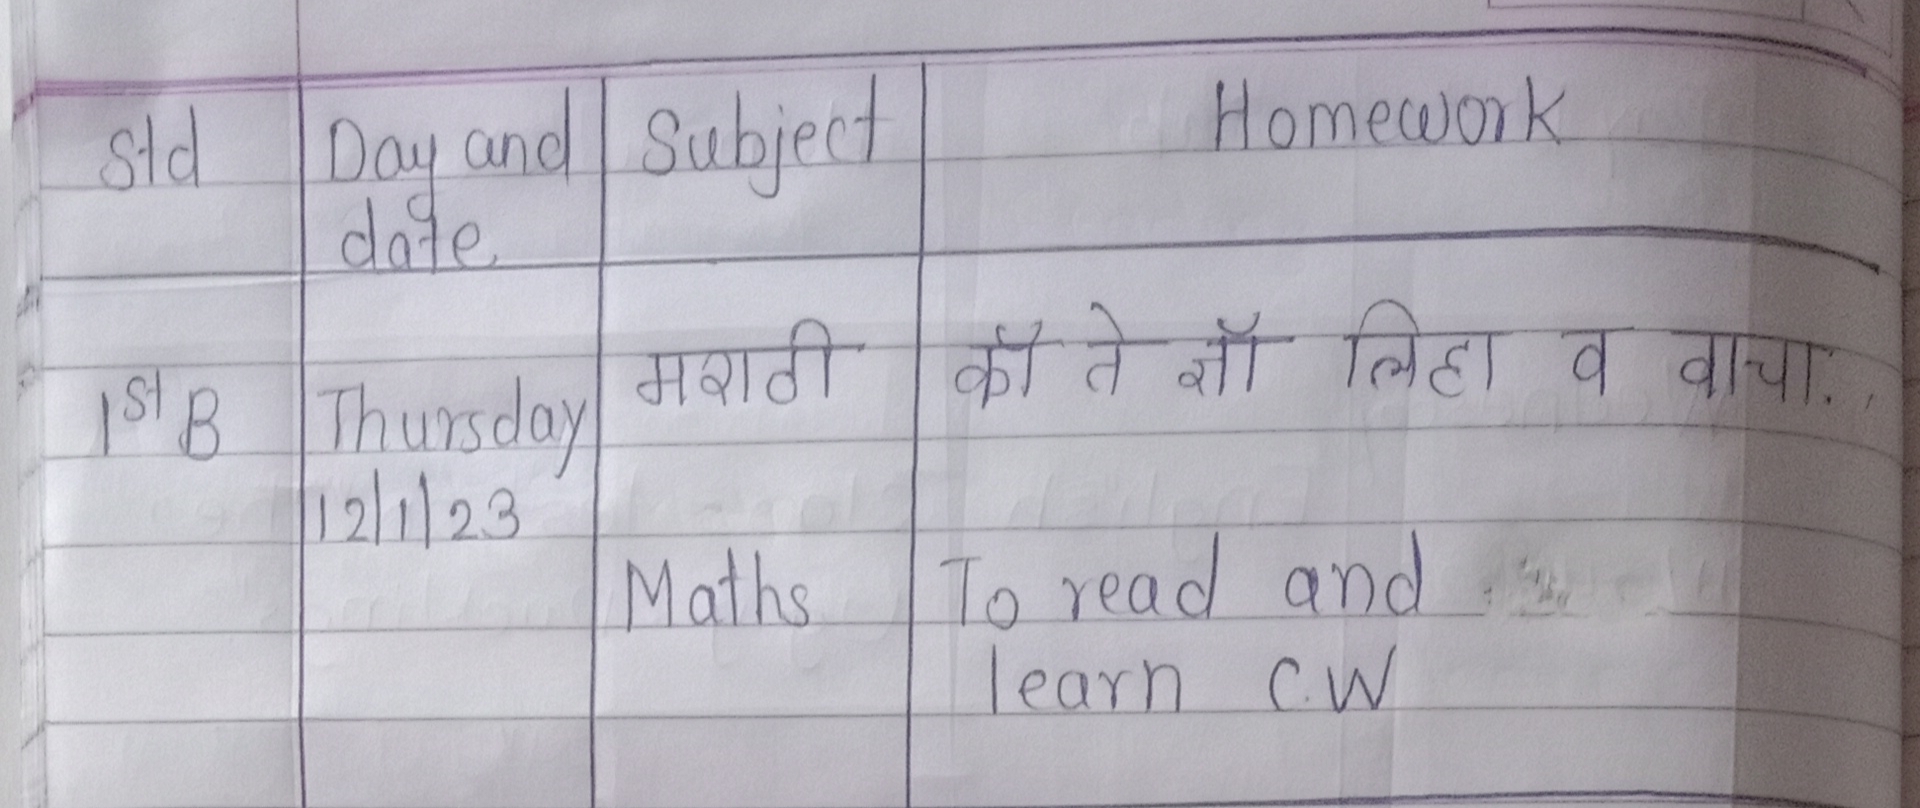 Std Day and Subject Homework
date
1st B Thursday मराठी कॉ ते ज्ञॉ लिहा व वाचा..
12/1/23
Maths To read and
learn C.W